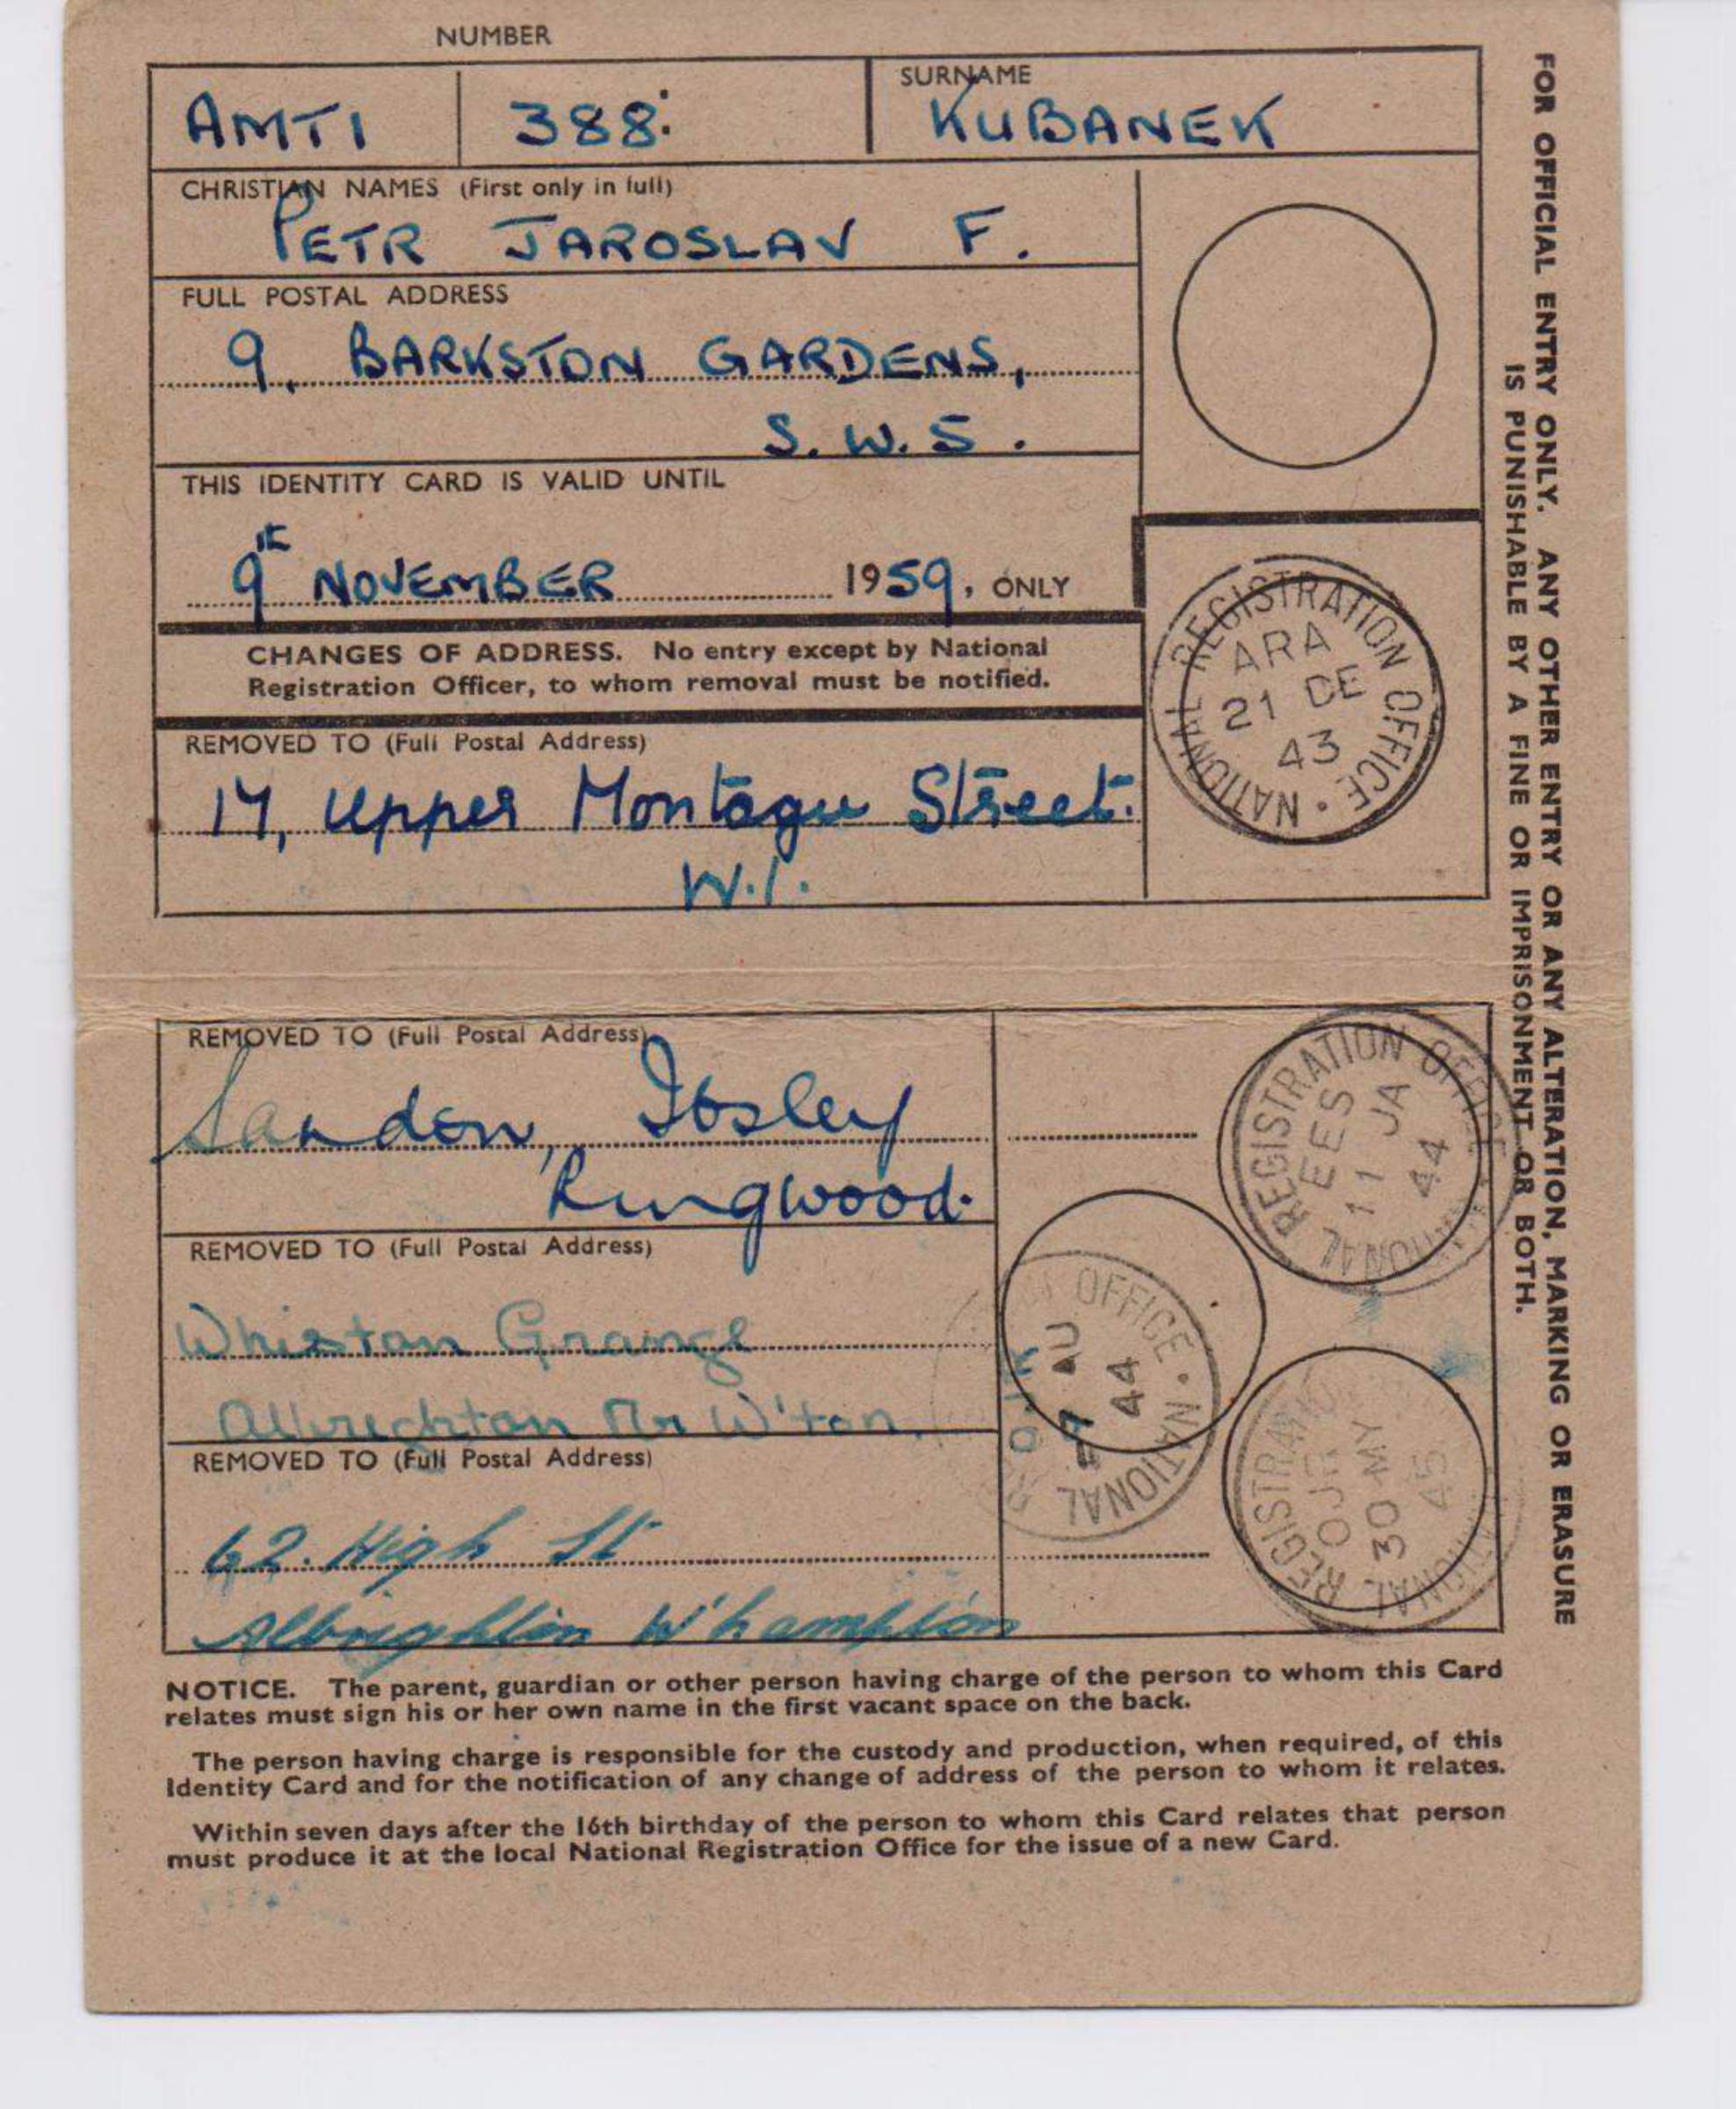 NUMBER
AMTI 388:
SURNAME
KUBANEK
CHRISTIAN NAMES (First only in full)
PETR JAROSLAV F.
FULL POSTAL ADDRESS
9, BARKSTON GARDENS,
S.W.5.
THIS IDENTITY CARD IS VALID UNTIL
9th NOVEMBER 1959, ONLY
CHANGES OF ADDRESS. No entry except by National
Registration Officer, to whom removal must be notified.
REMOVED TO (Full Postal Address)
17, Upper Montagu Street.
W.1.
NATIONAL REGISTRATION OFFICE
ARA
21 DE
43
REMOVED TO (Full Postal Address)
Sandon, Ibsley
Ringwood.
NATIONAL REGISTRATION OFFICE
EES
11 JA
44
REMOVED TO (Full Postal Address)
Whiston Grange
Albrighton Nr W'ton.
OFFICE · NATIONAL
AU
44
REMOVED TO (Full Postal Address)
62. High St
Albrighton W'hampton
NATIONAL REGISTRATION
OJR
30 MY
45
NOTICE. The parent, guardian or other person having charge of the person to whom this Card
relates must sign his or her own name in the first vacant space on the back.
The person having charge is responsible for the custody and production, when required, of this
Identity Card and for the notification of any change of address of the person to whom it relates.
Within seven days after the 16th birthday of the person to whom this Card relates that person
must produce it at the local National Registration Office for the issue of a new Card.
FOR OFFICIAL ENTRY ONLY. ANY OTHER ENTRY OR ANY ALTERATION, MARKING OR ERASURE
IS PUNISHABLE BY A FINE OR IMPRISONMENT OR BOTH.